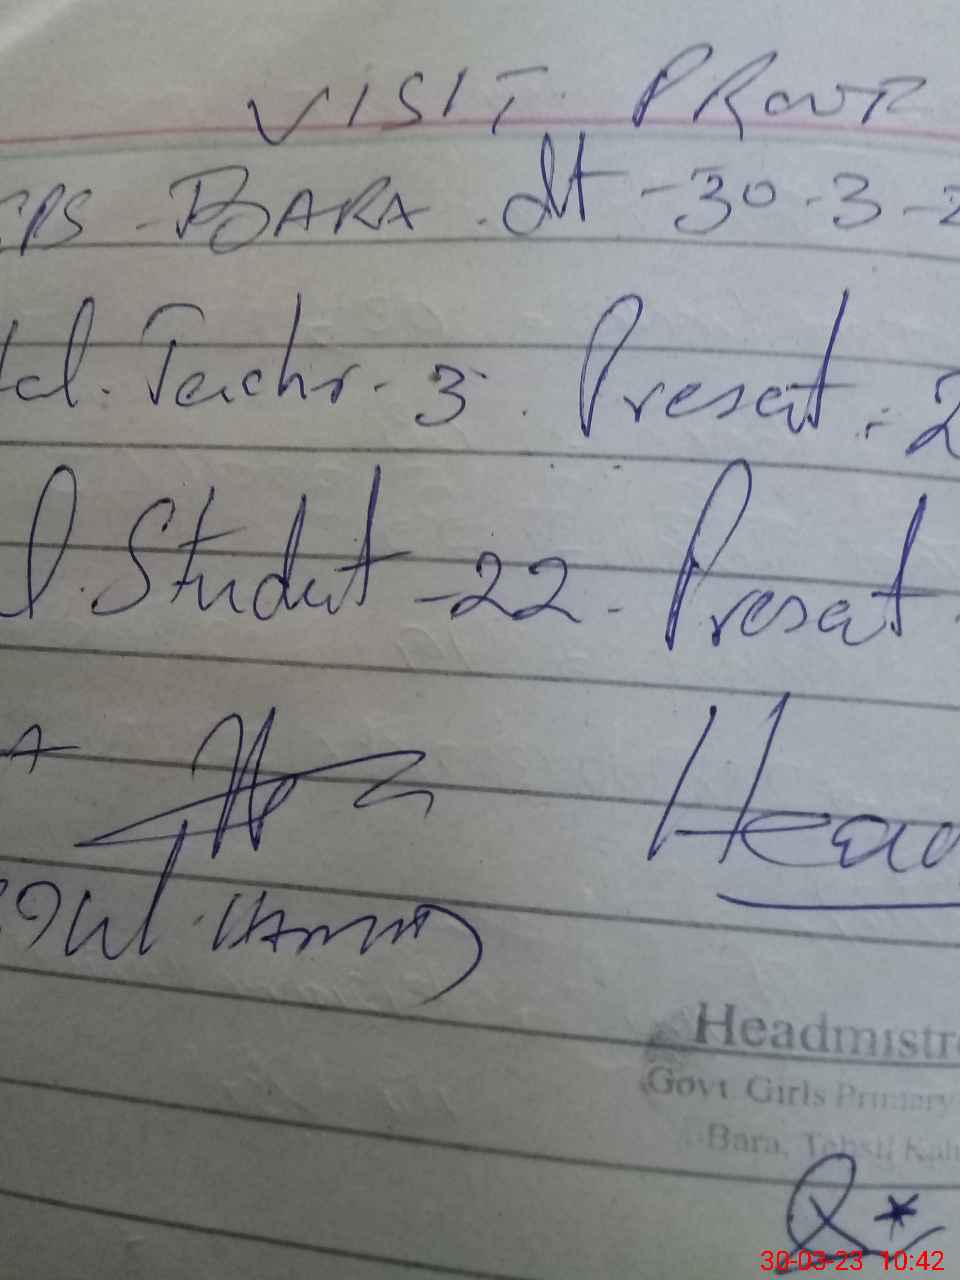 VISIT PROOF
GPS - BARA . dt - 30 - 3 - 2
tal . Teachr - 3 . Present : 2
l . Student - 22 - Present -
A
Head
Headmistre
Govt Girls Primary
Bara, Tehsil Kah
30-03-23 10:42